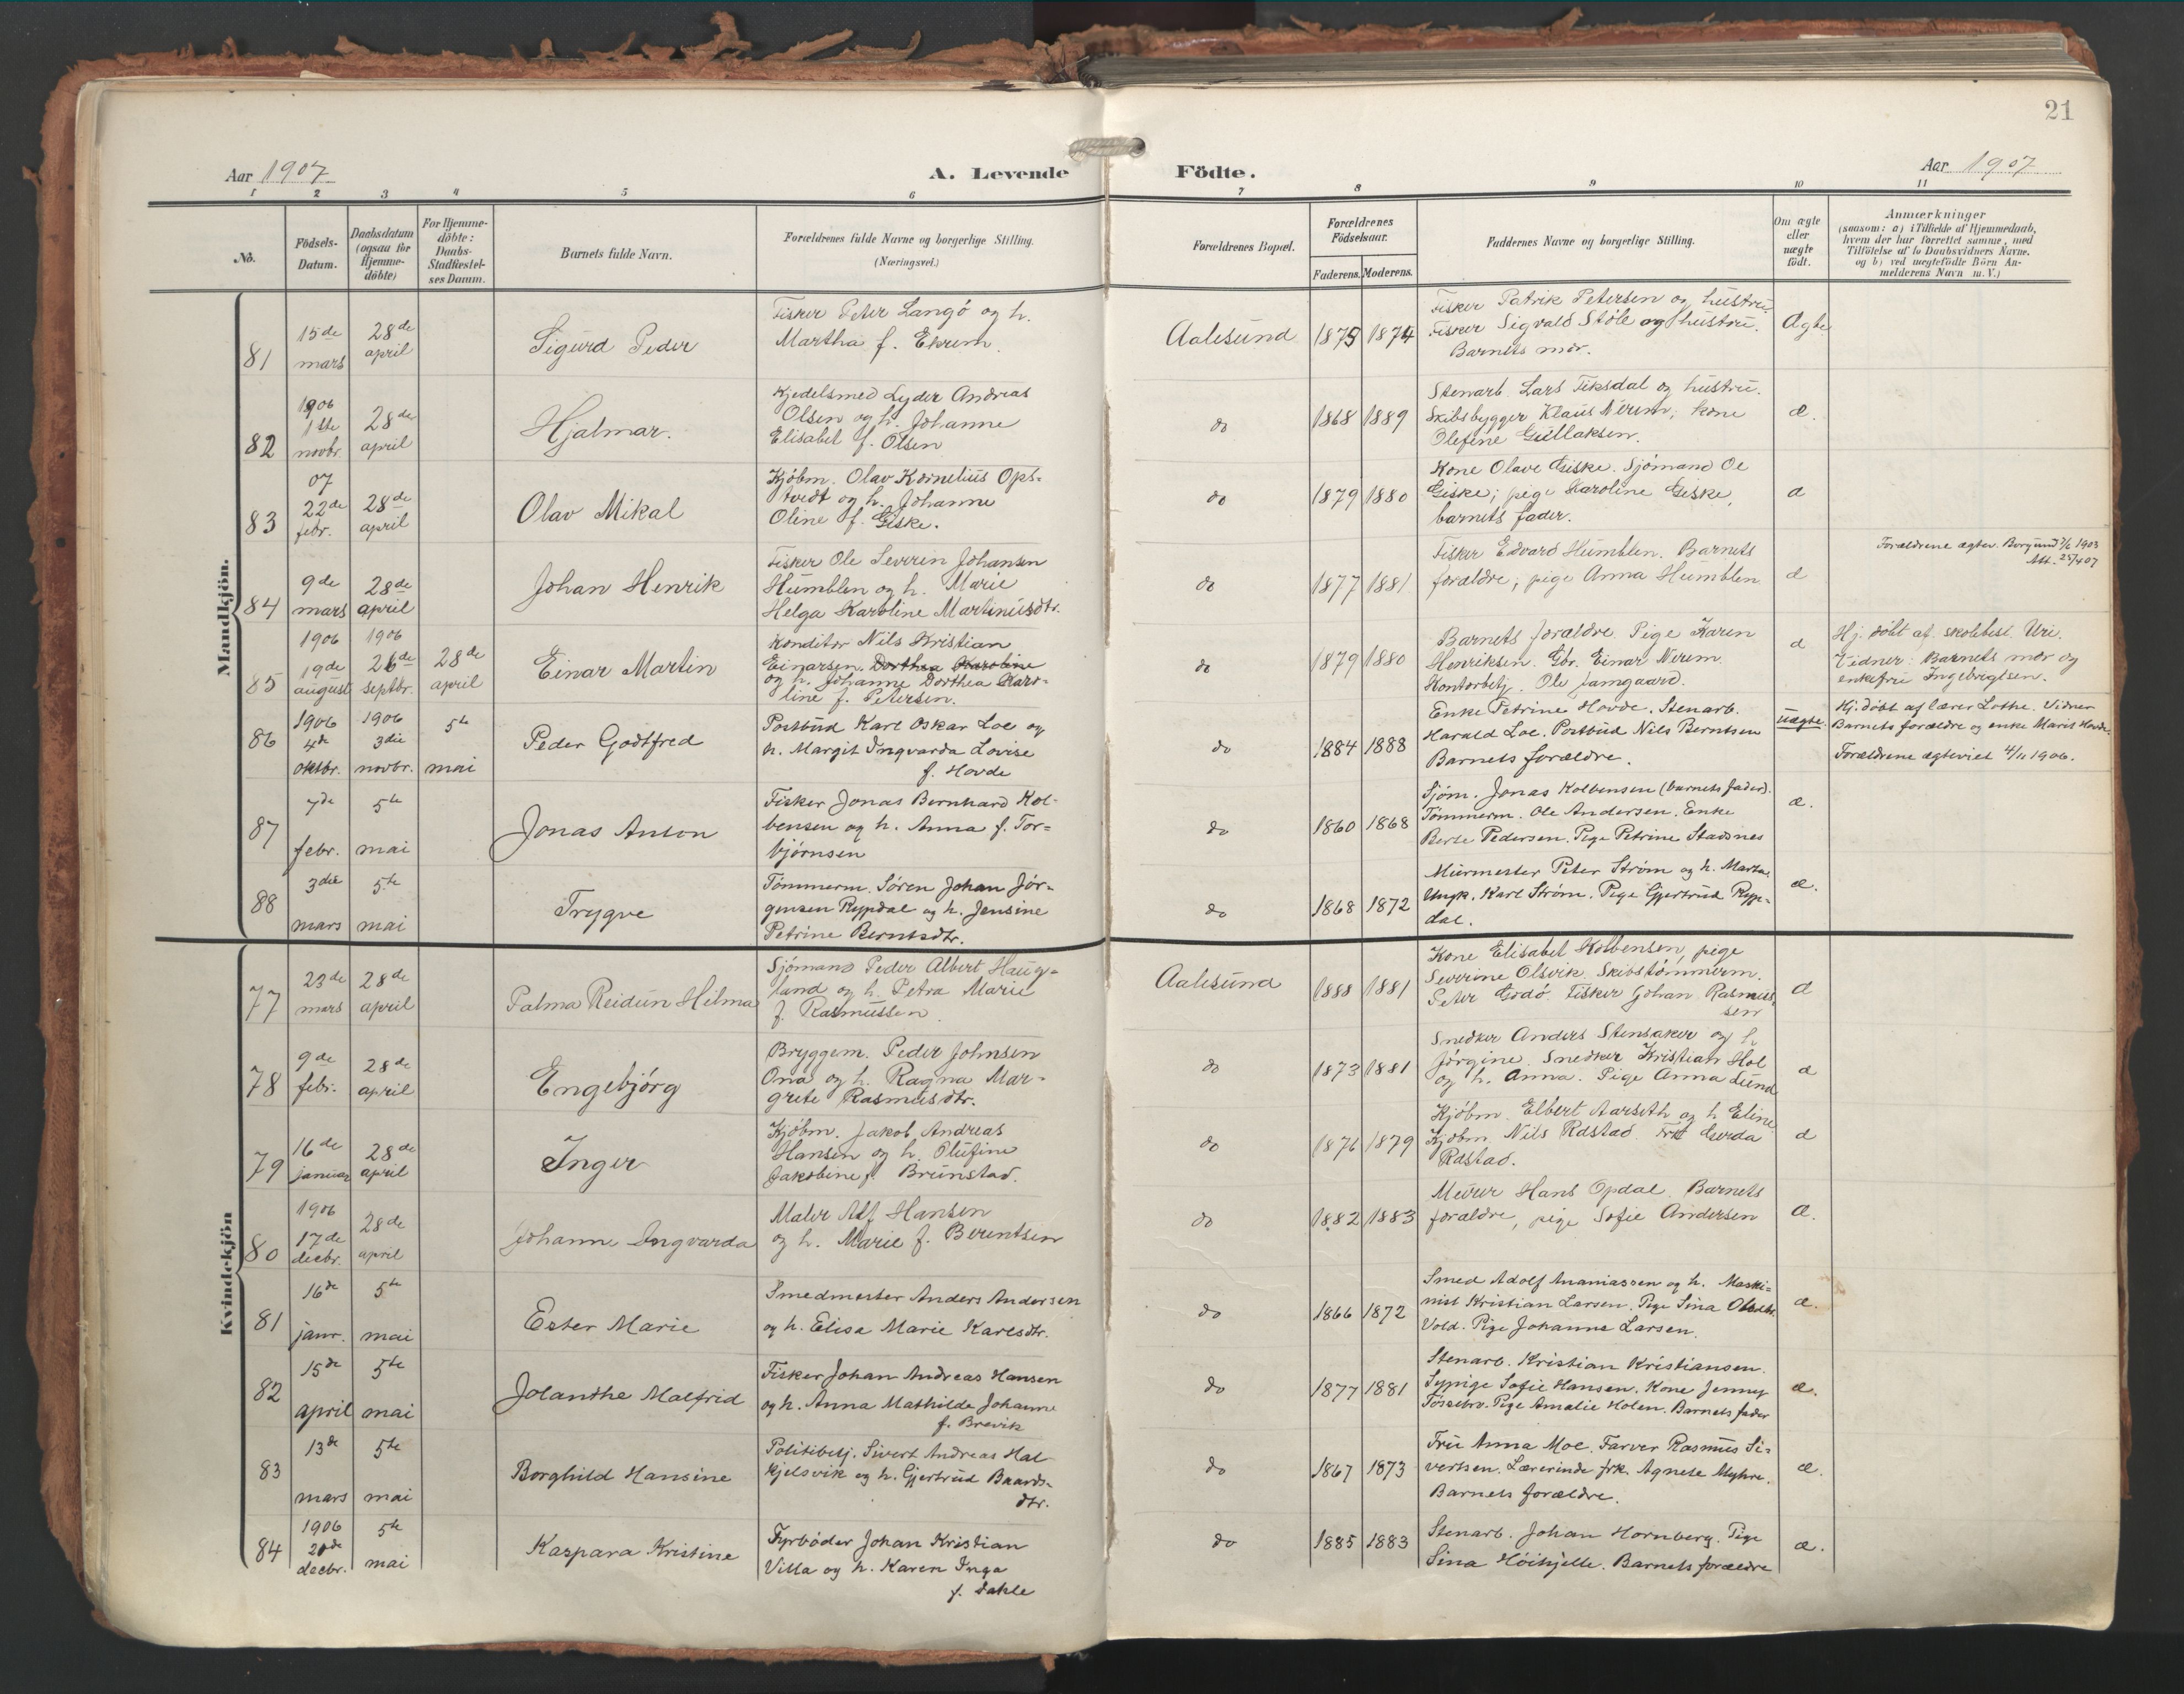 21
Aar 1907
A. Levende
Födte.
Aar 1907
1 2 3 4 5 6 7 8 9 10 11
No.
Födsels-
Datum.
Daabsdatum
(ogsaa for
Hjemme-
döbte)
For Hjemme-
döbte:
Daabs-
Stadfæstel-
ses Datum.
Barnets fulde Navn.
Forældrenes fulde Navne og borgerlige Stilling.
(Næringsvei.)
Forældrenes Bopæl.
Forældrenes
Födselsaar.
Faderens. Moderens.
Faddernes Navne og borgerlige Stilling.
Om ægte
eller
uægte
født.
Anmærkninger
(saasom: a) i Tilfælde af Hjemmedaab,
hvem der har forrettet samme, med
Tilföielse af to Daabsvidners Navne.
og b) ved uægtefödte Börn An-
melderens Navn m.V.)
Mandkjön.
81
15de
mars
28de
april
Sigurd Peder
Fisker Peter Langö og h.
Martha f. Ekrem.
Aalesund
1879 1874
Fisker Patrik Petersen og hustru.
Fisker Sigvald Støle og hustru.
Barnets mor.
Ægte
82
1906
1ste
novbr.
28de
april
Hjalmar.
Kjedelsmed Lyder Andreas
Olsen og h. Johanne
Elisabet f. Olsen
do
1868 1889
Stenarb. Lars Tiksdal og hustru.
Skibsbygger Klaus Nerem; kone
Olefine Gullaksen.
æ.
83
07
22de
febr.
28de
april
Olav Mikal
Kjöbm. Olav Kornelius Ops-
tvedt og h. Johanne
Oline f. Giske.
do
1879 1880
Kone Olave Giske. Sjömand Ole
Giske; pige Karoline Giske,
barnets fader.
æ
84
9de
mars
28de
april
Johan Henrik
Fisker Ole Severin Johansen
Humblen og h. Marie
Helga Karoline Martinusdtr.
do
1877 1881
Fisker Edvard Humblen. Barnets
forældre; pige Anna Humblen
æ
Forældrene ægtev. Borgund 7/6 1903
Att. 25/4 07
85
1906
19de
august
1906
26de
septbr.
28de
april
Einar Martin
Konditor Nils Kristian
Einarsen. Dorthea Karoline
og h. Johanne Dorthea Karo-
line f. Petersen.
do
1879 1880
Barnets forældre. Pige Karen
Henriksen. Gbr. Einar Nerem.
Kontorbetj. Ole Jamgaard.
æ
Hj. döbt af skolebest. Uri.
Vidner: Barnets mor og
enkefru Ingebrigtsen.
86
1906
4de
oktbr.
1906
3die
novbr.
5te
mai
Peder Godtfred
Postbud Karl Oskar Loe og
h. Margit Ingvarda Lovise
f. Hovde
do
1884 1888
Enke Petrine Hovde. Stenarb.
Harald Loe. Postbud Nils Berntsen
Barnets forældre.
uægte.
Hj. döbt af lærer Lothe. Vidner
Barnets forældre og enke Marit Hovde.
Forældrene ægteviet 4/11 1906.
87
7de
febr.
5te
mai
Jonas Anton
Fisker Jonas Bernhard Kol-
bensen og h. Anna f. Tor-
björnsen
do
1860 1868
Sjöm. Jonas Kolbensen (barnets fader).
Tömmerm. Ole Andersen. Enke
Berte Pedersen. Pige Petrine Stadsnes
æ.
88
3die
mars
5te
mai
Trygve
Tömmerm. Sören Johan Jör-
gensen Rypdal og h. Jensine
Petrine Berntsdtr.
do
1868 1872
Murmester Peter Ström og h. Marta.
Ungk. Karl Ström. Pige Gjertrud Ryp-
dal.
æ.
Kvindekjön
77
23de
mars
28de
april
Palma Reidun Hilma
Sjömand Peder Albert Haug-
land og h. Petra Marie
f. Rasmussen.
Aalesund
1888 1881
Kone Elisabet Kolbensen, pige
Severine Olsvik. Skibstömmerm.
Peter Godö. Fisker Johan Rasmus
sen
æ
78
9de
febr.
28de
april
Engebjörg
Bryggem. Peder Johnsen
Ona og h. Ragna Mar-
grete Rasmusdtr.
do
1873 1881
Snedker Anders Stensaker og h
Jörgine. Snedker Kristian Hol
og h. Anna. Pige Anna Lund
æ
79
16de
januar
28de
april
Inger
Kjöbm. Jakob Andreas
Hansen og h. Olufine
Jakobine f. Brunstad.
do
1876 1879
Kjöbm. Elbert Aarseth og h Eline
Kjöbm. Nils Rdstad. Frk Gerda
Rdstad.
æ
80
1906
17de
decbr.
28de
april
Johanne Ingvarda
Maler Alf Hansen
og h. Marie f. Berentsen
do
1882 1883
Murer Hans Opdal. Barnets
forældre, pige Sofie Andersen
æ.
81
16de
janr.
5te
mai
Ester Marie
Smedmester Anders Andersen
og h. Elisa Marie Karlsdtr.
do
1866 1872
Smed Adolf Ananiassen og h. Maski-
nist Kristian Larsen. Pige Sina
Vold. Pige Johanne Larsen.
æ.
82
15de
april
5te
mai
Jolanthe Malfrid
Fisker Johan Andreas Hansen
og h. Anna Mathilde Johanne
f. Brevik
do
1877 1881
Stenarb. Kristian Kristiansen.
Sypige Sofie Hansen. Kone Jenny
Fossebro. Pige Amalie Holen. Barnets fader
æ.
83
13de
mars
5te
mai
Borghild Hansine
Politibetj. Sivert Andreas Hal
kjelsvik og h. Gjertrud Baards-
dtr.
do
1867 1873
Fru Anna Moe. Farver Rasmus Si-
vertsen. Lærerinde frk. Agnete Myhre.
Barnets forældre.
æ.
84
1906
20de
decbr.
5te
mai
Kaspara Kristine
Fyrböder Johan Kristian
Villa og h. Karen Inga
f. Dahle
do
1885 1883
Stenarb. Johan Hornberg. Pige
Sina Höikjelle. Barnets forældre
æ.